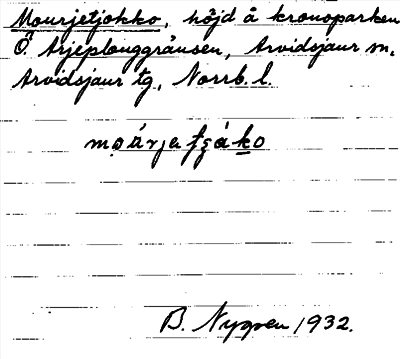 Mourjetjokko, höjd å kronoparken
Ö. Arjeplouggränsen, Arvidsjaur sn.
Arvidsjaur tg, Norrb. l.
B. Nygren 1932.